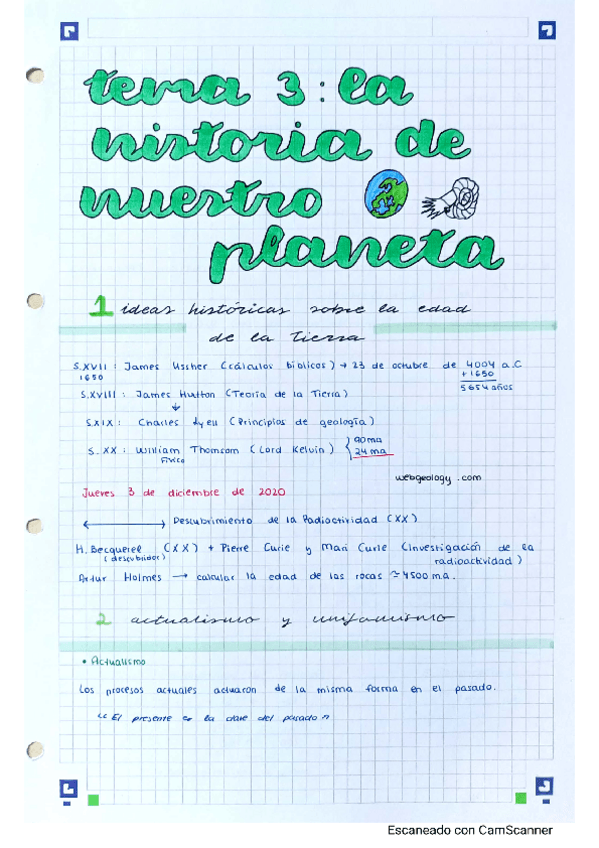 tema 3: la
historia de
nuestro
planeta
1 ideas históricas sobre la edad
de la Tierra
S.XVII: James Ussher (cálculos bíblicos) → 23 de octubre de 4004 a.C
1650
+1650
5654 años
S.XVIII: James Hutton (Teoría de la Tierra)
S.XIX: Charles Lyell (Principios de geología)
S. XX: William Thomsom (Lord Kelvin)
Físico
90 ma
24 ma
webgeology.com
Jueves 3 de diciembre de 2020
Descubrimiento de la Radioactividad (XX)
H. Becquerel (XX) + Pierre Curie y Mari Curie (Investigación de la
(descubridor)
radioactividad)
Artur Holmes → calcular la edad de las rocas ≈ 4500 ma.
2 actualismo y unifamismo
• Actualismo
Los procesos actuales actuaron de la misma forma en el pasado.
"El presente es la clave del pasado"
Escaneado con CamScanner